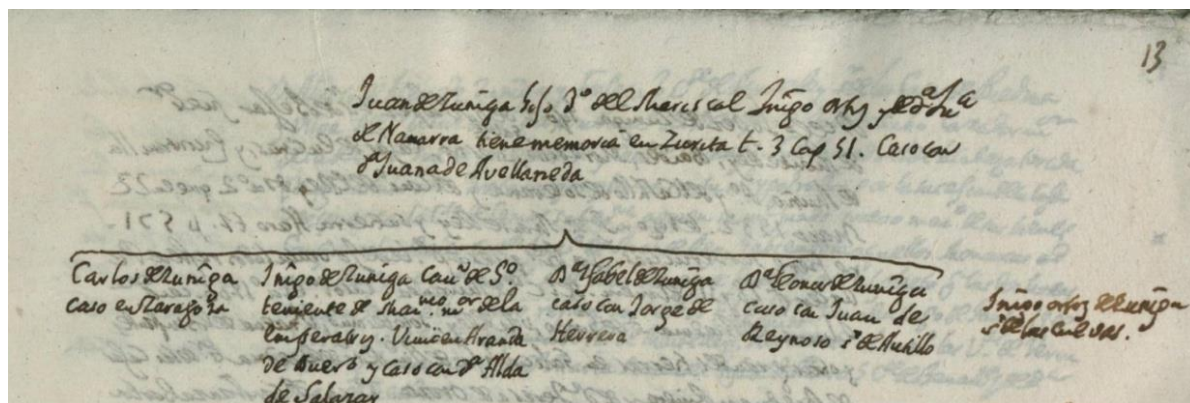 13
Juan de Zuñiga hijo 3º del Mariscal Iñigo ortiz y de dª Juª
de Navarra tiene memoria en Zurita t. 3 cap 51. Caso con
dª Juana de Avellaneda
Carlos de Zuñiga
caso en Zaragoza
Iñigo de Zuñiga Cauº de Sº
teniente de mayor de la
Emperatriz. Viuio en Aranda
de Duero y caso con dª Alda
de Salazar
Dª Isabel de Zuñiga
caso con Jorge de
Herrera
Dª Leonor de Zuñiga
caso con Juan de
Reynoso sº de Autillo
Iñigo ortiz de Zuñiga
sº de las Cuebas.